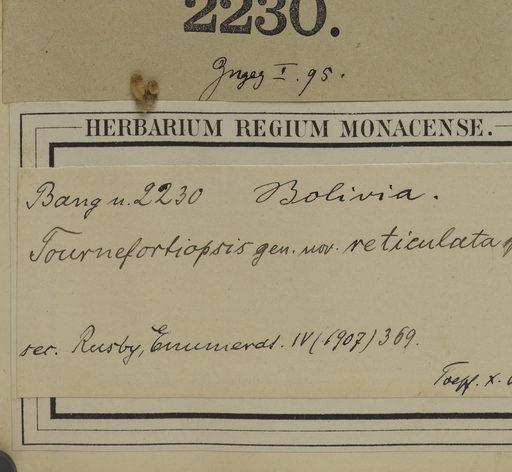 2230.
I. 95.
HERBARIUM REGIUM MONACENSE.
Bang n. 2230 Bolivia.
Tournefortiopsis gen. nov. reticulata
sec. Rusby, Enumerat. IV (1907) 369.